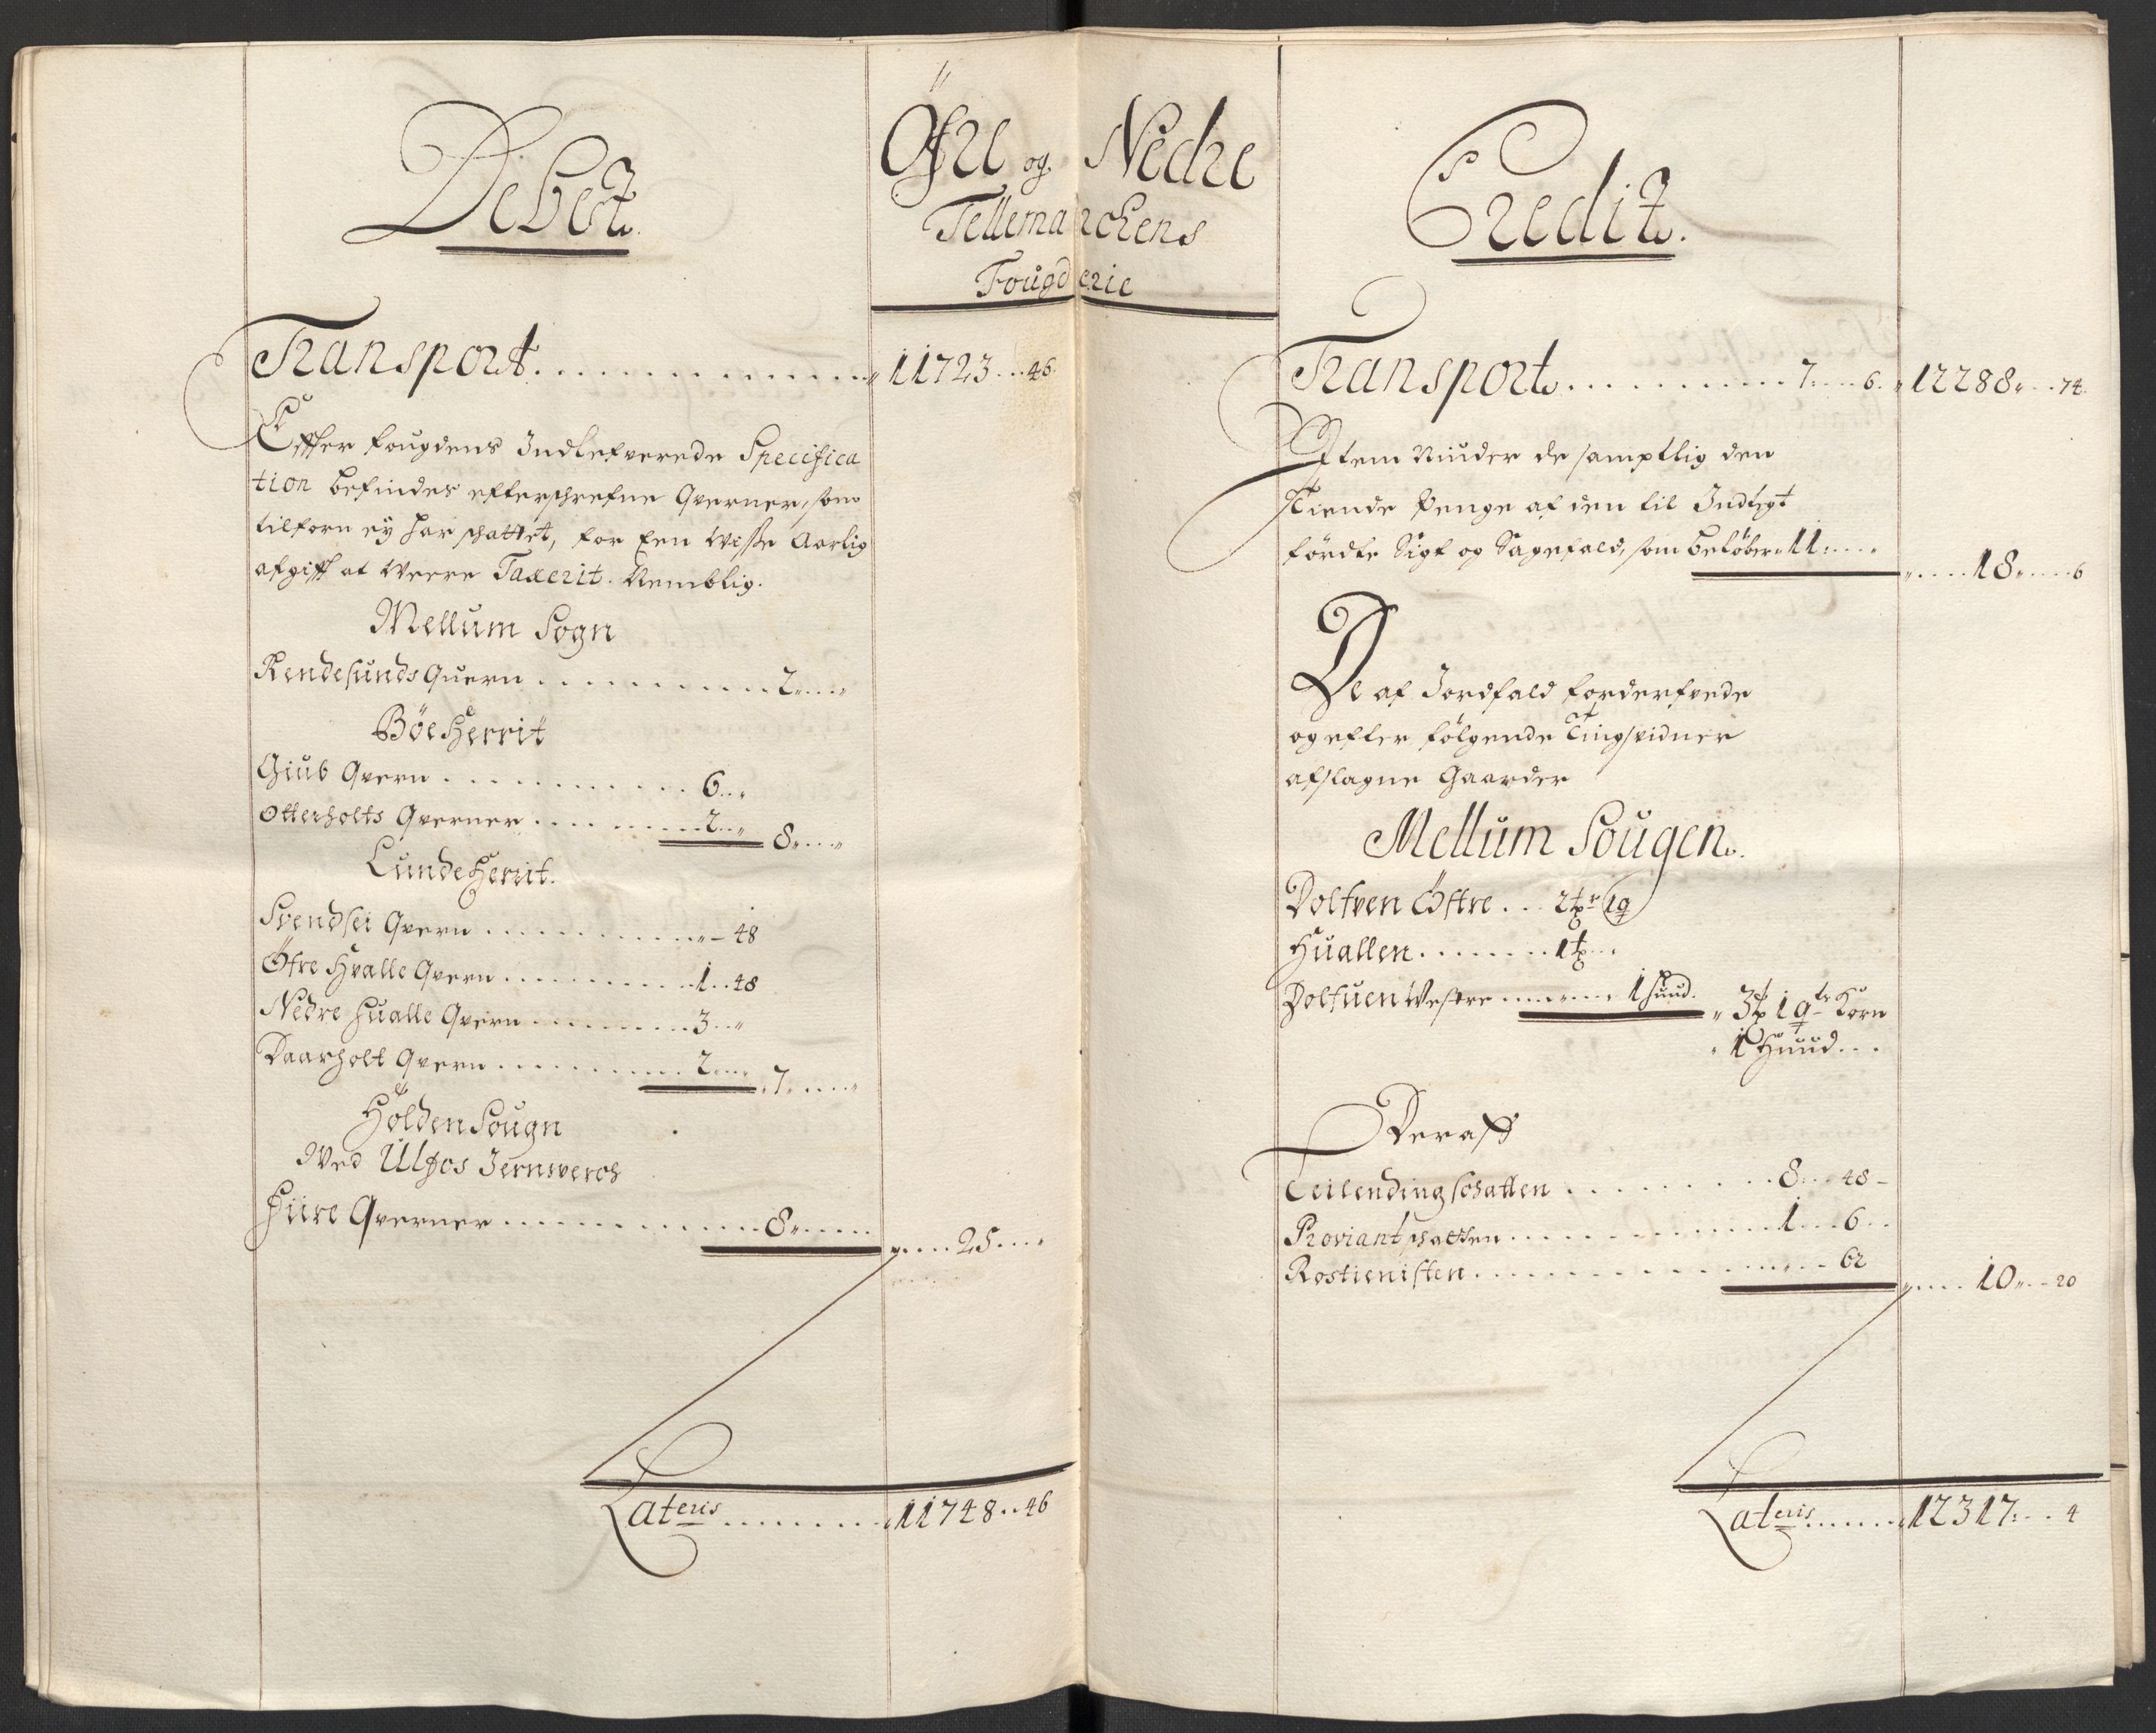 Debet.
Öfre og Nedre
Tellemarchens
Fougderie
Transport. . . . . . . . . . . . . . " 11723 . . . 46
Effter Fougdens Indlefverede Specifica
tion befindes effterschrefne Qverner, som
tilforn ey har schattet, for Een wisse Aarlig
afgifft at Were Taxerit. Nemblig.
Mellum Sogn
Rendesunds Quern . . . . . . . . . . . 2 " . . . "
Böe Herrit
Giub Qvern . . . . . . . . . . . . 6 . . "
Otterholts Qverner . . . . . . . . . 2 . . " 8 " . . . "
Lunde Herrit.
Svendsei Qvern . . . . . . . . . . . . " - 48
Öfre Hvalle Qvern . . . . . . . . . . 1 . . 48
Nedre Hualle Qvern . . . . . . . . . 3 . . "
Daarholt Qvern . . . . . . . . . . 2 . . . " 7 " . . . "
Holden Sougn
Wed Ulfos Jernsverch
Fiire Qverner . . . . . . . . . . . . . . 8 " . . . . " . . . 25 . . . "
Lateris . . . . . . . . . 11748 . . 46
Credit.
Transport . . . . . . . . . . . 7 . . . . 6. " 12288 " . . . 74.
Item Niuder de samptlig den
tiende Penge af den til Indtegt
fördte Sigt og Sagefald, som belöber " 11 : . . . " " . . . . 18 " . . . . 6
De af Jordfald forderfvede
og efter fölgende Tingsvidner
afslagne Gaarder
Mellum Sougen.
Dolfven Östre . . . 2 tr 1 q
Huallen . . . . . . . . 1 t . . "
Dolfuen Westre . . . . . . . 1 huud. " 3 t 1 q Korn
" 1 Huud . . .
Deraff
Leilending schatten . . . . . . . . . 8 . . . 48 -
Proviant schatten . . . . . . . . . . . . 1 . . . 6 . .
Rostienisten . . . . . . . . . . . . . . . . 62 " . . . . 10 " . . - 20
Lateris . . . . . . 12317 : . . . 4